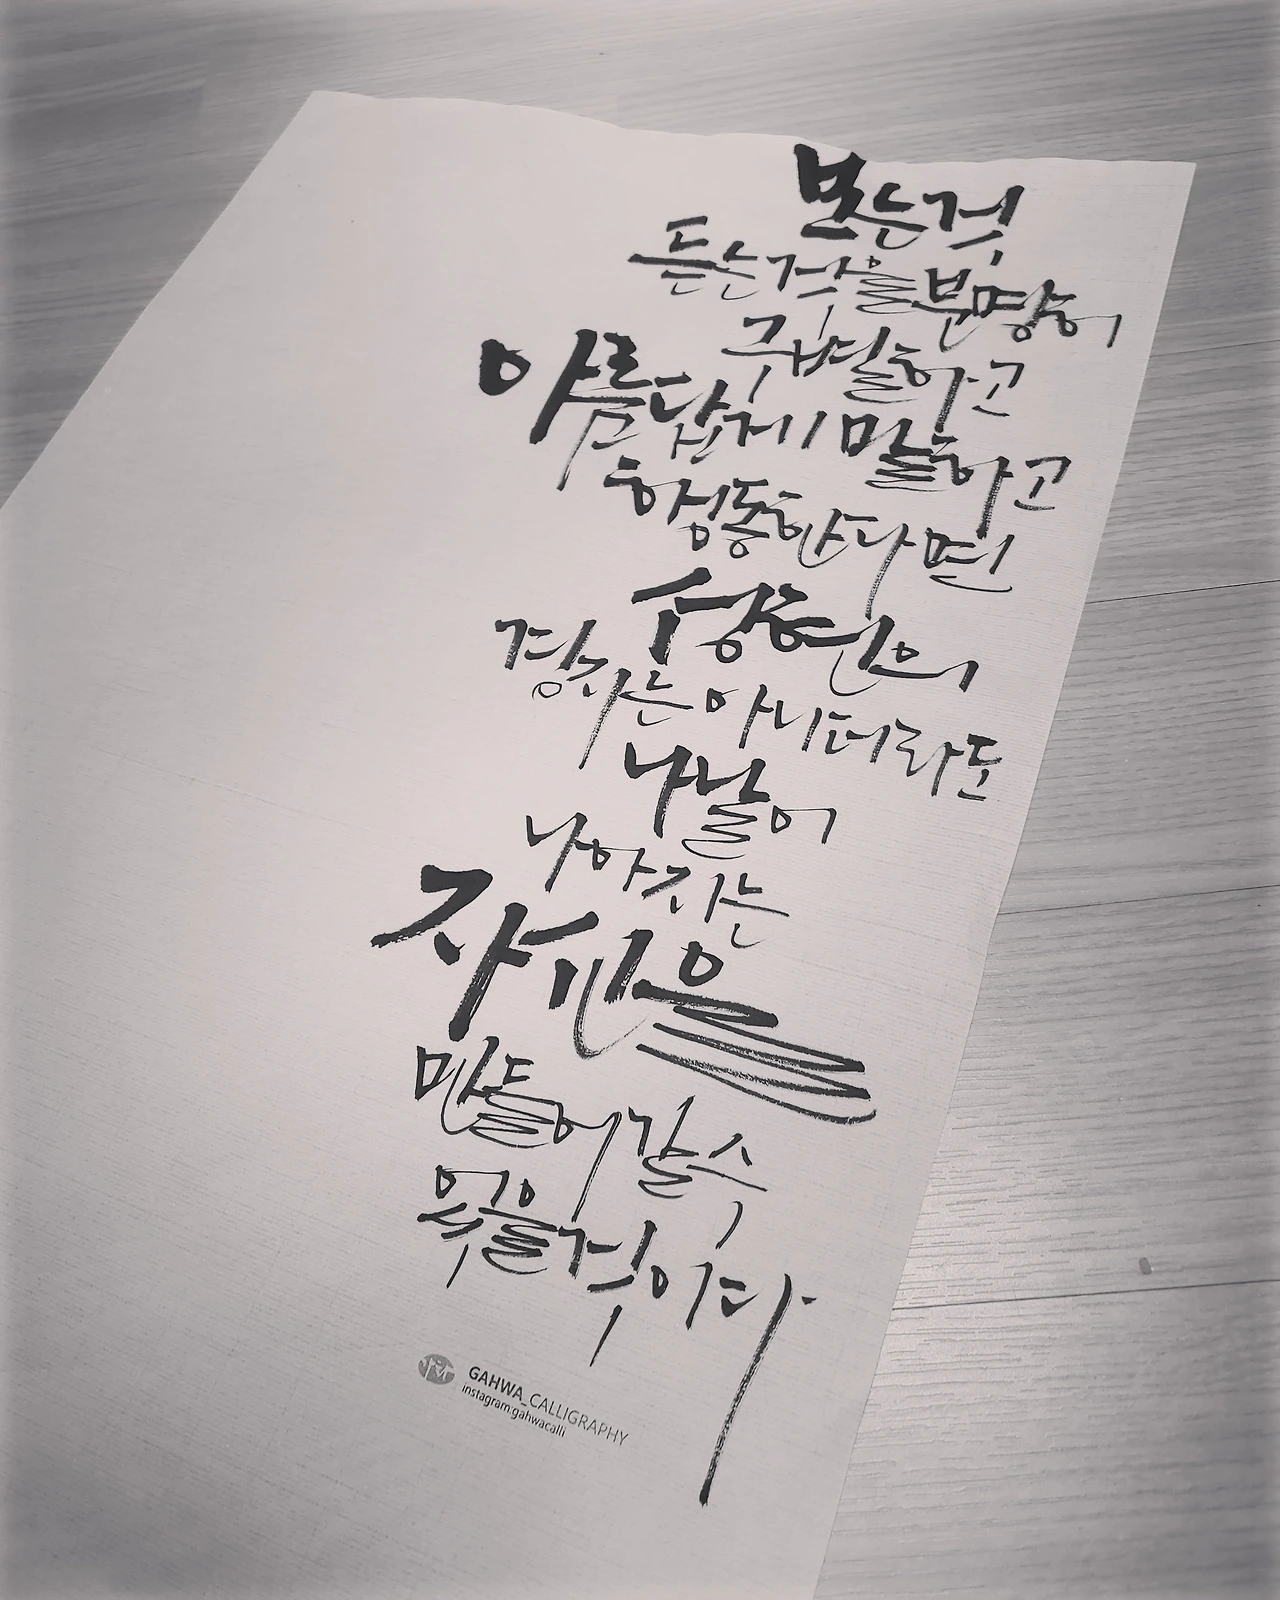 보는것
듣는것을 분명히
구별하고
아름답게 말하고
행동한다면
성현의
경지는 아니더라도
나날이
나아지는
자신을
만들어 갈 수
있을 것이다
GAHWA_CALLIGRAPHY
instagram:gahwacalli